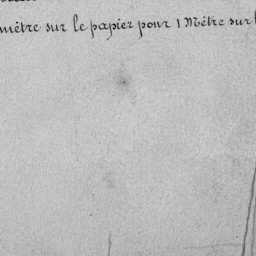 mètre sur le papier pour 1 Mètre sur